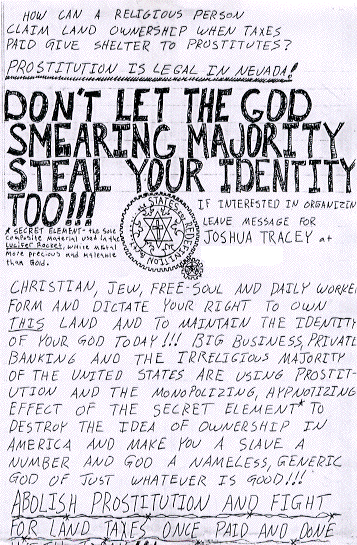 HOW CAN A RELIGIOUS PERSON
CLAIM LAND OWNERSHIP WHEN TAXES
PAID GIVE SHELTER TO PROSTITUTES?
PROSTITUTION IS LEGAL IN NEVADA!
DON'T LET THE GOD
SMEARING MAJORITY
STEAL YOUR IDENTITY
TOO!!!
A SECRET ELEMENT - the sole
composite material used in the
Lucifer Rocket, white metal
more precious and malleable
than Gold.
STATES REDEFINITION
IF INTERESTED IN ORGANIZIN
LEAVE MESSAGE FOR
JOSHUA TRACEY at
CHRISTIAN, JEW, FREE-SOUL AND DAILY WORKER
FORM AND DICTATE YOUR RIGHT TO OWN
THIS LAND AND TO MAINTAIN THE IDENTITY
OF YOUR GOD TODAY!!! BIG BUSINESS, PRIVATE
BANKING AND THE IRRELIGIOUS MAJORITY
OF THE UNITED STATES ARE USING PROSTIT-
UTION AND THE MONOPOLIZING, HYPNOTIZING
EFFECT OF THE SECRET ELEMENT* TO
DESTROY THE IDEA OF OWNERSHIP IN
AMERICA AND MAKE YOU A SLAVE A
NUMBER AND GOD A NAMELESS, GENERIC
GOD OF JUST WHATEVER IS GOOD!!!
ABOLISH PROSTITUTION AND FIGHT
FOR LAND TAXES ONCE PAID AND DONE